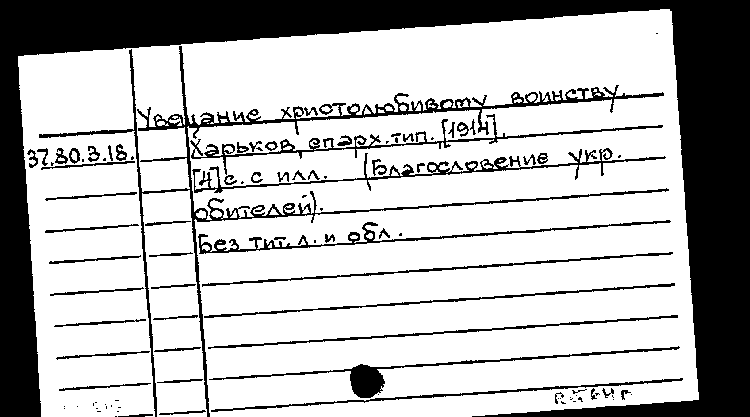 Увещание христолюбивому воинству.
37.80.3.18. Харьков, епарх. тип., [1914].
[4] с. с илл. (Благословение укр.
обителей).
Без тит. л. и обл.